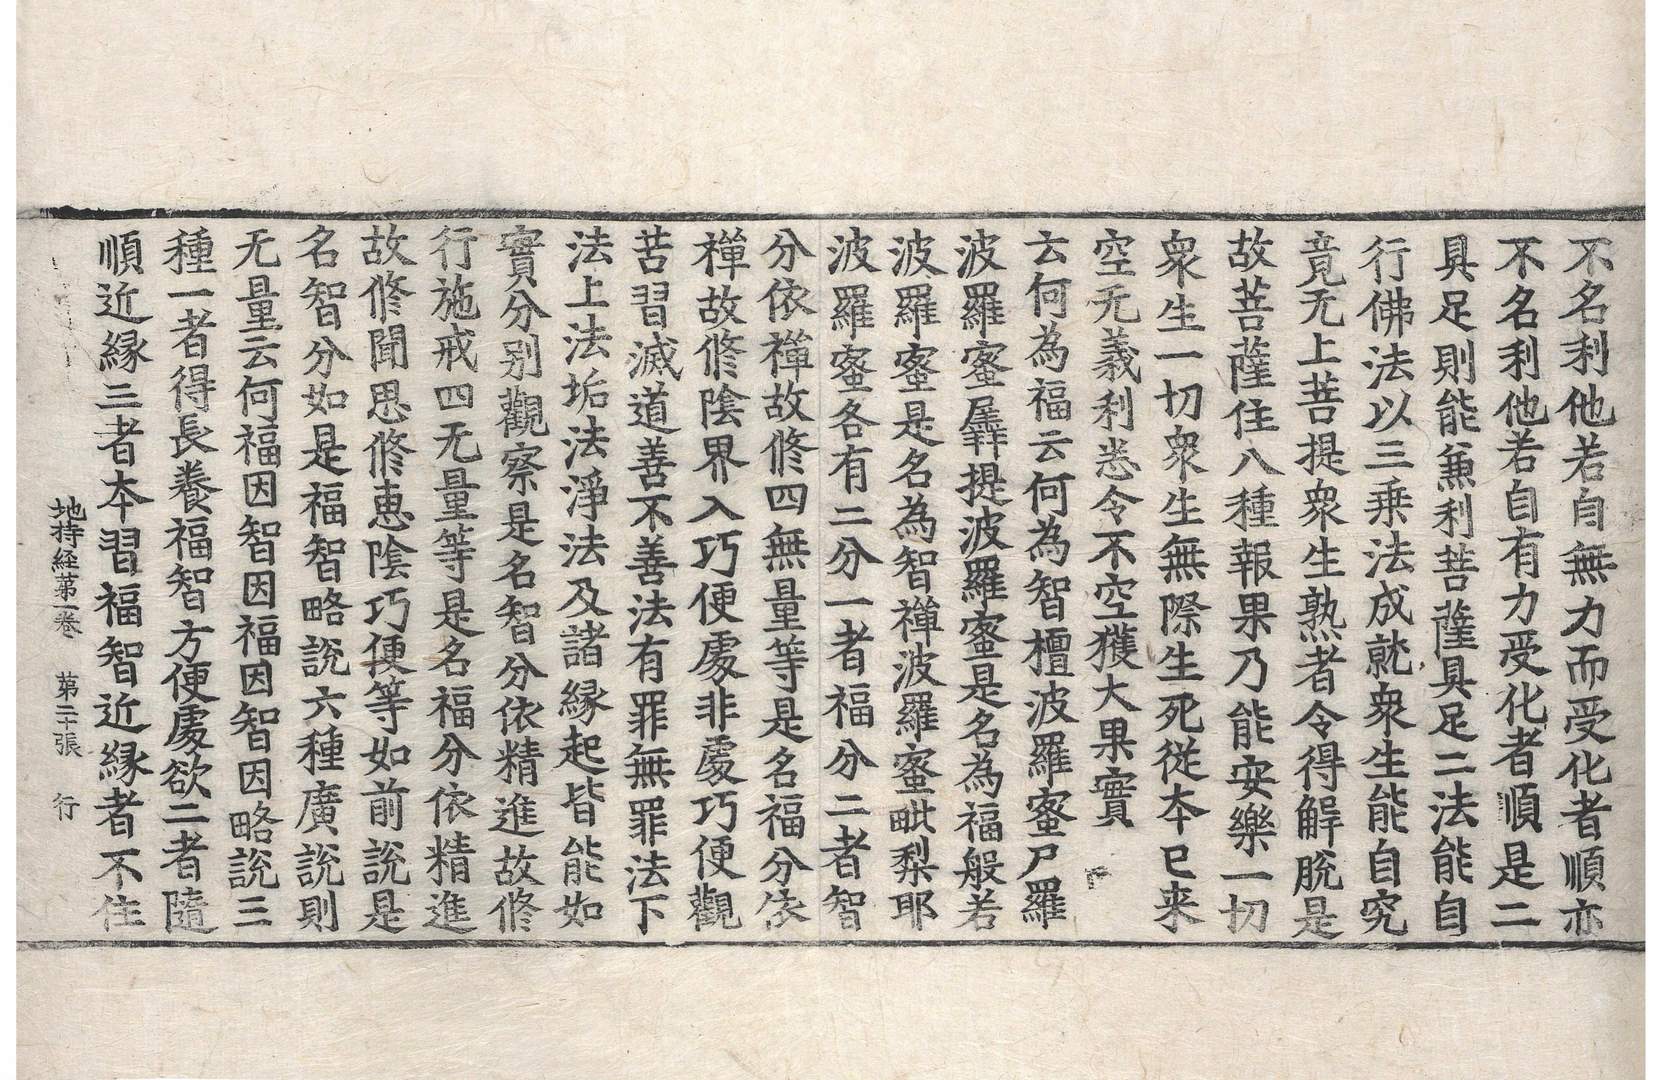 不名利他若自無力而受化者順亦
不名利他若自有力受化者順是二
具足則能兼利菩薩具足二法能自
行佛法以三乘法成就衆生能自究
竟无上菩提衆生熟者令得解脫是
故菩薩住八種報果乃能安樂一切
衆生一切衆生無際生死從本已来
空无義利悉令不空獲大果實
云何為福云何為智檀波羅蜜尸羅
波羅蜜羼提波羅蜜是名為福般若
波羅蜜是名為智禪波羅蜜毗梨耶
波羅蜜各有二分一者福分二者智
分依禪故修四無量等是名福分依
禪故修陰界入巧便處非處巧便觀
苦習滅道善不善法有罪無罪法下
法上法垢法淨法及諸緣起皆能如
實分別觀察是名智分依精進故修
行施戒四无量等是名福分依精進
故修聞思修惠陰巧便等如前說是
名智分如是福智略說六種廣說則
无量云何福因智因福因智因略說三
種一者得長養福智方便處欲二者隨
順近緣三者本習福智近緣者不住
地持経第一卷　第二十張　行